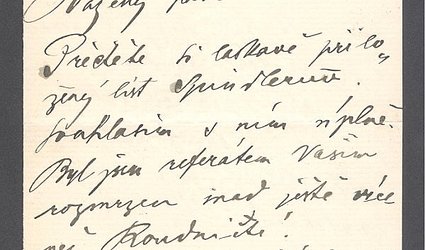 Vážený
Přečtěte si laskavě přilo„
žený list Spindlerův.
Souhlasím s ním úplně.
Byl jsem referátem Vašim
rozmrzen snad ještě více
než Roudničtí!